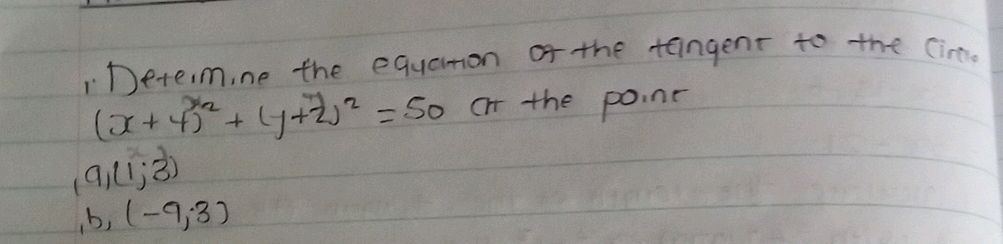 1. Determine the equation of the tangent to the Circle
(x + 4)² + (y+2)² = 50 at the point
a, (1; 3)
b, (-9; 3)